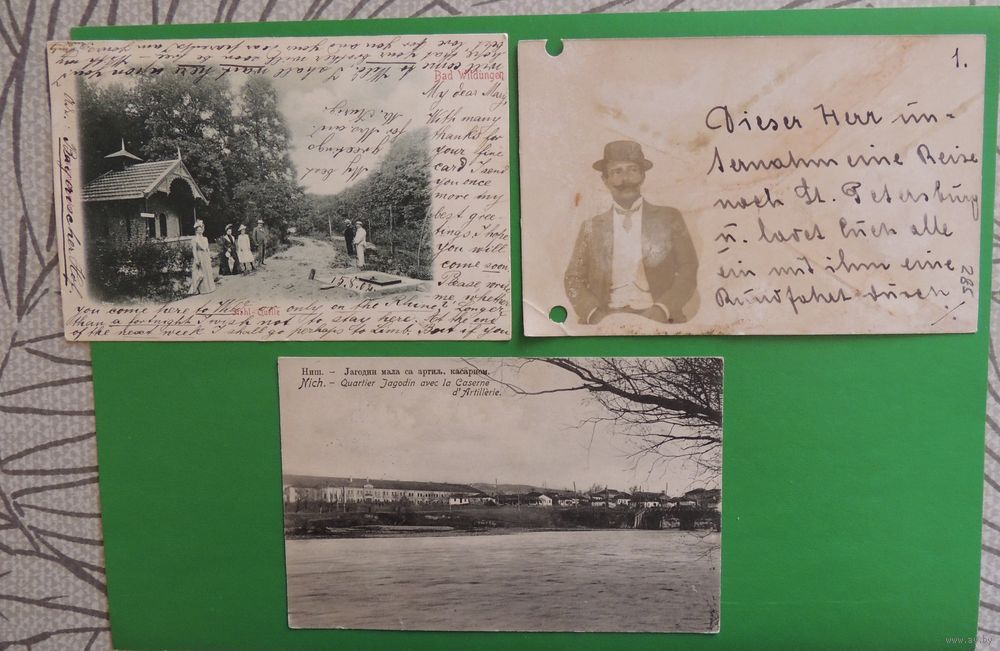 Bad Wildungen
My dear Mary,
With many
thanks for
your fine
card I send
you once
more my
best gree-
tings. I hope
you will
come soon.
Please write
me whether
you come here to Wild. or only on the Rhine? Longer
than a fortnight I wish not to stay here. At the end
of the next week I shall go perhaps to Limb. But if you
My best
greetings
for Mrs. and
Mr.
15.8.02.
Stahl-Quelle
1.
Dieser Herr un-
ternahm eine Reise
nach St. Petersburg
u. ladet Euch alle
ein mit ihm eine
Rundfahrt durch
285
Ниш. – Јагодин мала са артиљ. касарном.
Nich. – Quartier Jagodin avec la Caserne
d'Artillerie.
www.ay.by